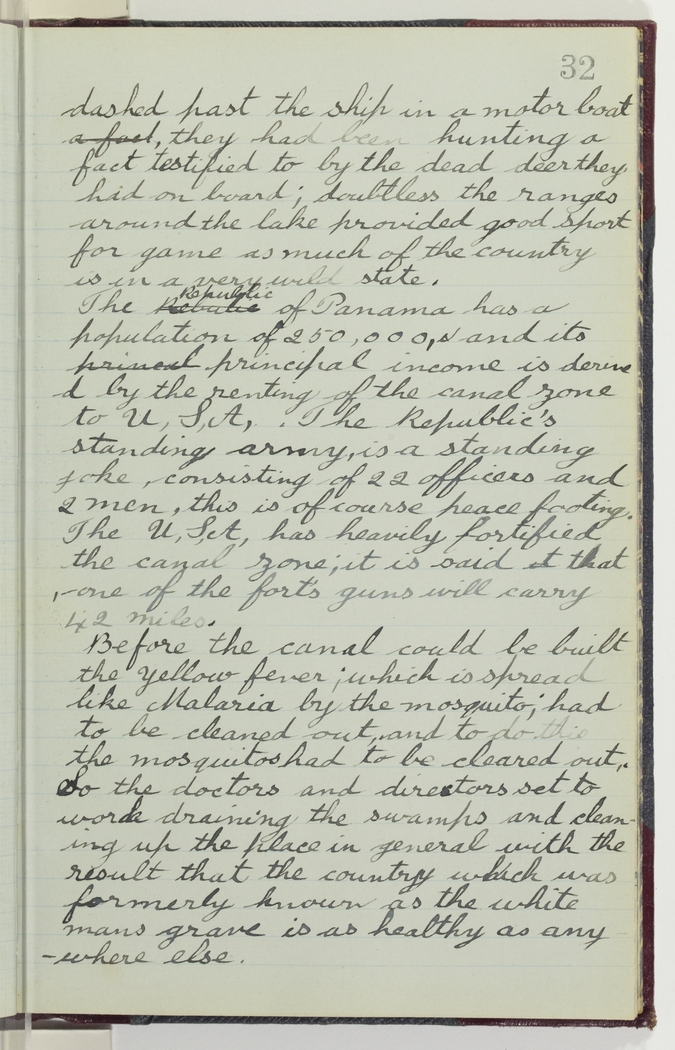 32
dashed past the ship in a motor boat
a fact, they had been hunting a
fact testified to by the dead deer they
had on board; doubtless the ranges
around the lake provided good sport
for game as much of the country
is in a very wild state.
Republic
The of Panama has a
population of 250,000, and its
principal income is derive
d by the renting of the canal zone
to U,S,A,. The Republic's
standing army, is a standing
joke, consisting of 22 officers and
2 men, this is of course peace footing.
The U,S,A, has heavily fortified
the canal zone; it is said it that
,-one of the fort's guns will carry
42 miles.
Before the canal could be built
the yellow fever; which is spread
like Malaria by the mosquito; had
to be cleaned out, and to do this
the mosquitos had to be cleared out,.
So the doctors and directors set to
work draining the swamps and clean-
ing up the place in general with the
result that the country which was
formerly known as the white
mans grave is as healthy as any
-where else.